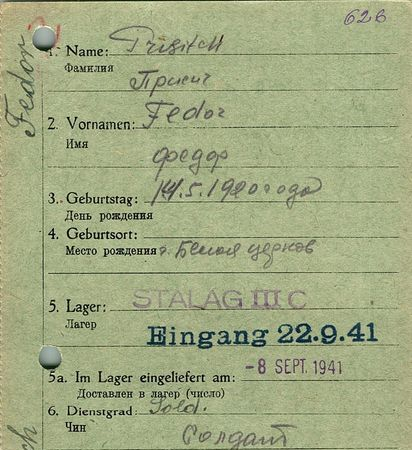 626
1. Name: Prisitch
Фамилия
Присич
2. Vornamen: Fedor
Имя
Федор
3. Geburtstag: 14.5.1920 года
День рождения
4. Geburtsort:
Место рождения г. Белая церков
5. Lager: STALAG III C
Лагер
Eingang 22.9.41
-8 SEPT. 1941
5a. Im Lager eingeliefert am:
Доставлен в лагер (число)
6. Dienstgrad: Sold.
Чин
Солдат
Fedor